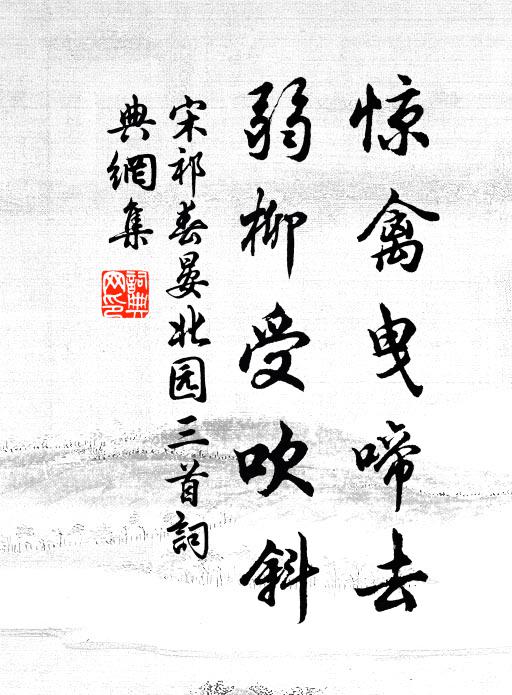 惊禽曳啼去
弱柳受吹斜
宋祁春宴北园三首詞
典網集
詞典网印